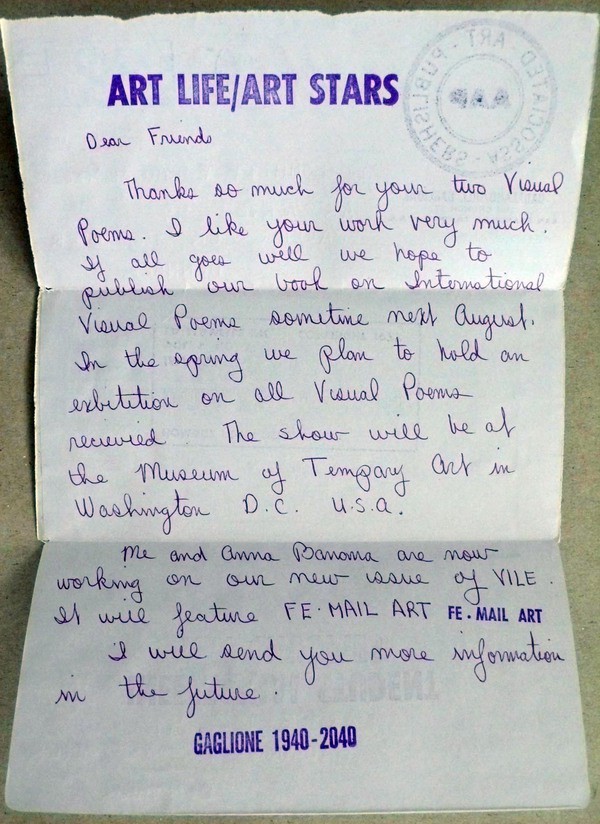 ART LIFE/ART STARS
ART-PUBLISHERS-ASSOCIATED
A.A.P
Dear Friends
Thanks so much for your two Visual
Poems. I like your work very much.
If all goes well we hope to
publish our book on International
Visual Poems sometime next August.
In the spring we plan to hold an
exbitition on all Visual Poems
recievied The show will be at
the Museum of Tempary Art in
Washington D.C. U.S.A.
Me and Anna Banana are now
working on our new issue of VILE.
It will feature FE·MAIL ART FE·MAIL ART
I will send you more information
in the future.
GAGLIONE 1940-2040